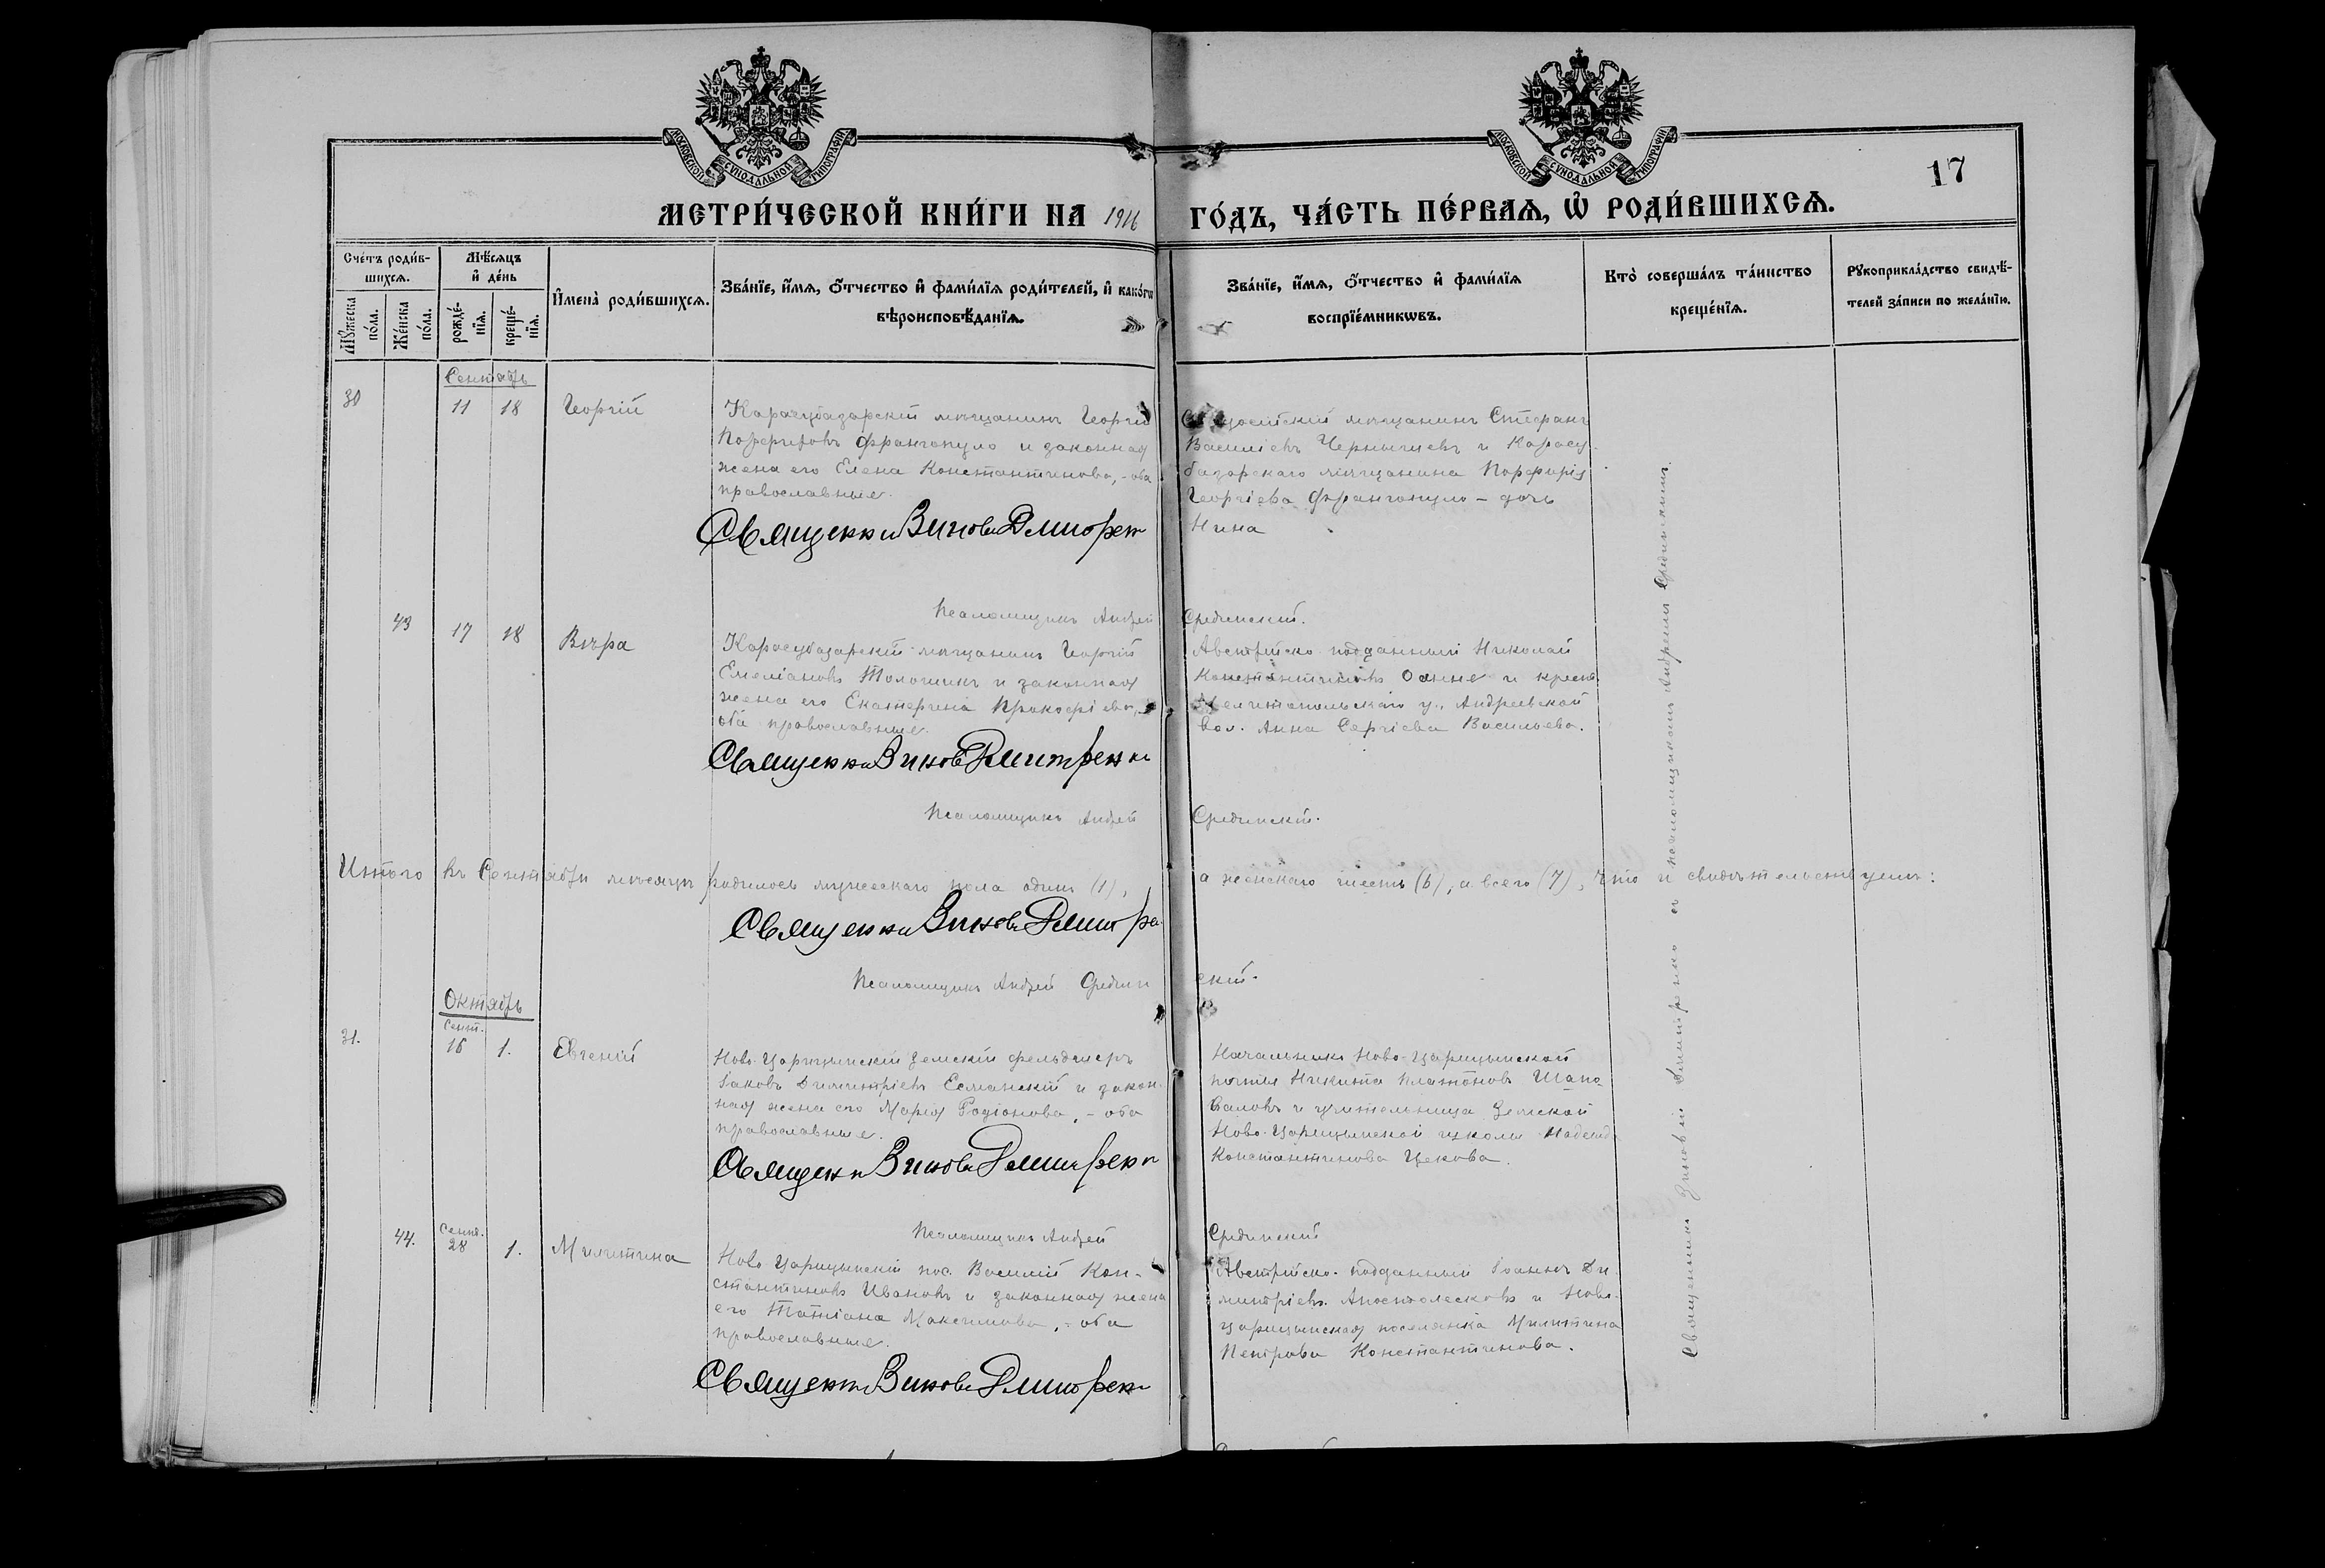 МОСКОВСКОЙ СѴНОДАЛЬНОЙ ТИПОГРАФІИ
МОСКОВСКОЙ СѴНОДАЛЬНОЙ ТИПОГРАФІИ
17
МЕТРИ́ЧЕСКОЙ КНИ́ГИ НА 1916 ГО́ДЪ, ЧА́СТЬ ПЕ́РВАѦ, Ѡ҆ РОДИ́ВШИХСѦ.
Сче́тъ роди́в-
шихсѧ.
Мѣ́сѧцъ
и҆ де́нь
Мꙋ́жеска
по́ла.
Же́нска
по́ла.
рожде́-
нїѧ.
креще́-
нїѧ.
И҆мена̀ роди́вшихсѧ.
Зва́нїе, и҆́мѧ, ѻ҆́тчество и҆ фами́лїѧ роди́телей, и҆ како́гѡ
вѣроисповѣ́данїѧ.
Зва́нїе, и҆́мѧ, ѻ҆́тчество и҆ фами́лїѧ
воспрїе́мникѡвъ.
Кто̀ соверша́лъ та́инство
креще́нїѧ.
Рꙋкоприкла́дство свидѣ́-
телей за́писи по жела́нїю.
Сентябрь
30 11 18 Георгій
Карасубазарскій мѣщанинъ Георгій
Порфирьевъ Франгопуло и законная
жена его Елена Константинова, - оба
православные.
Священни Зиновi Дмитрен
мѣщанинъ Стефанъ
Василіевъ Чернышевъ и Карасу-
базарскаго мѣщанина Порфирія
Георгіева Франгопуло - дочь
Нина
Псаломщикъ Андрей Срединскій.
43 17 18 Вѣра
Карасубазарскій мѣщанинъ Георгій
Емеліановъ Толошинъ и законная
жена его Екатерина Прокофіева,
оба православные.
Священни Зинов Дмитренк
Австрійско-подданный Николай
Константиновъ и крест.
Мелитопольскаго у., Андреевской
вол. Анна Сергіева Васильева.
Псаломщикъ Андрей Срединскій.
Итого въ Сентябрѣ мѣсяцѣ родилось мужескаго пола одинъ (1), а женскаго шесть (6), а всего (7), что и свидѣтельствуемъ:
Священни Зиновi Дмитре
Псаломщикъ Андрей Средин скій.
Октябрь
Сент.
31. 16 1. Евгеній
Ново-Царицынскій Земскій фельдшеръ
Іаковъ Димитріевъ Есманскій и закон-
ная жена его Марія Родіонова, - оба
православные.
Священн Зинови Дмитренк
Начальникъ Ново-Царицынской
почты Никита Платоновъ Шапо-
валовъ и учительница Земской
Ново-Царицынской школы Надежда
Константинова Цекова.
Псаломщикъ Андрей Срединскій
Сент.
44. 28 1. Милитина
Ново-Царицынскій пос. Василій Кон-
стантиновъ Ивановъ и законная жена
его Татіана Максимова, - оба
православные.
Священн Зинови Дмитрен
Австрійско-подданный Іоаннъ Ди-
митріевъ Апостолесковъ и Ново-
царицынская поселянка Милитина
Петрова Константинова.
Священникъ Зиновій Димитренко съ псаломщикомъ Андреемъ Срединскимъ.